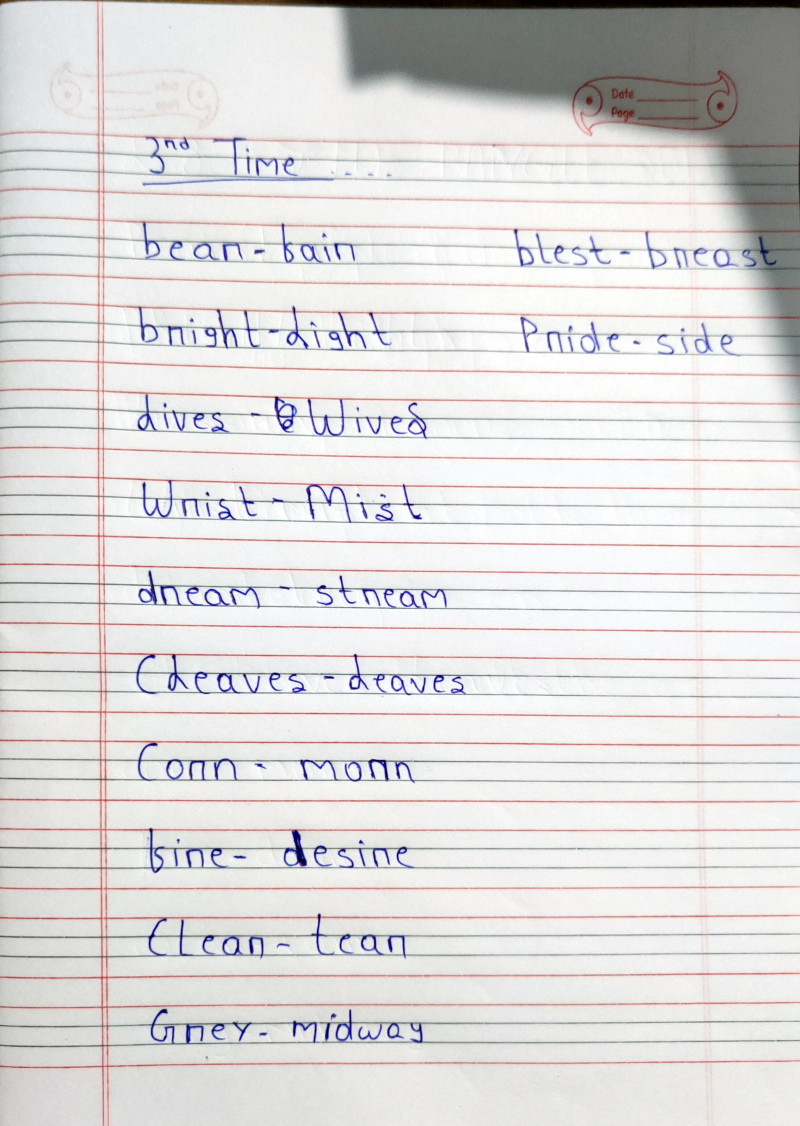 Date
Page
3rd Time ....
bear - fair blest - breast
bright - light Pride - side
lives - Wives
Wrist - Mist
dream - stream
Cleaves - leaves
Corn - morn
fire - desire
Clear - tear
Grey - midway